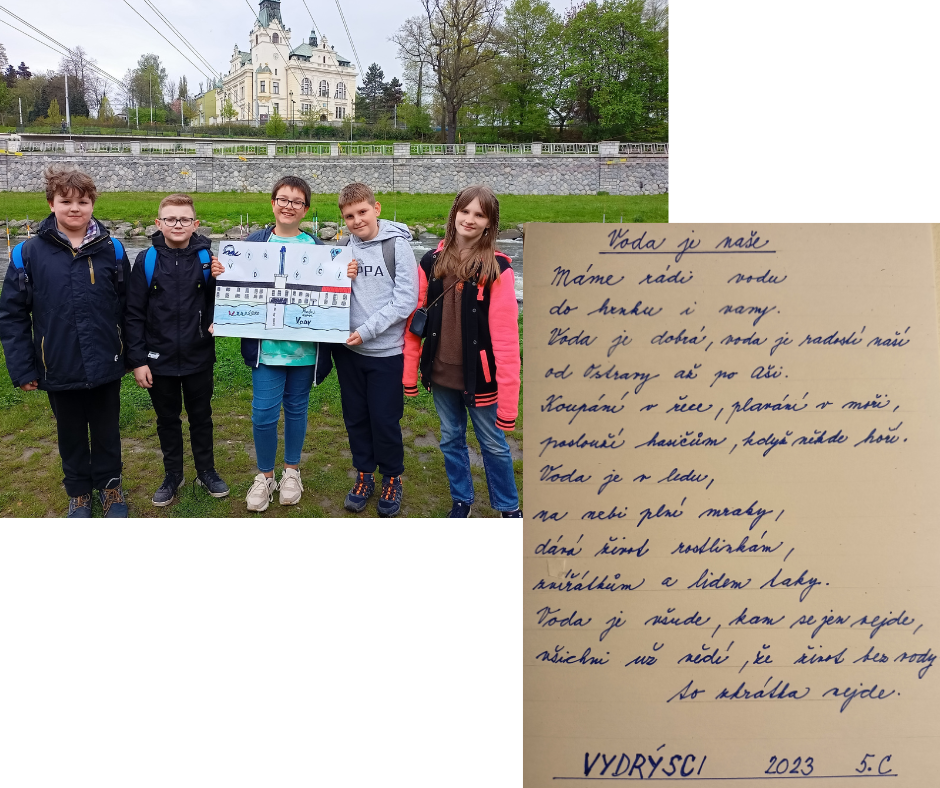 VODY
PPA
Voda je naše
Máme rádi vodu
do hrnku i vany.
Voda je dobrá, voda je radostí naší
od Ostravy až po Aši.
Koupání v řece, plavání v moři,
poslouží hasičům, když někde hoří.
Voda je v ledu,
na nebi plní mraky,
dává život rostlinkám,
zvířátkům a lidem taky.
Voda je všude, kam se jen vejde,
všichni už vědí, že život bez vody
to zkrátka nejde.
VYDRÝSCI 2023 5.C